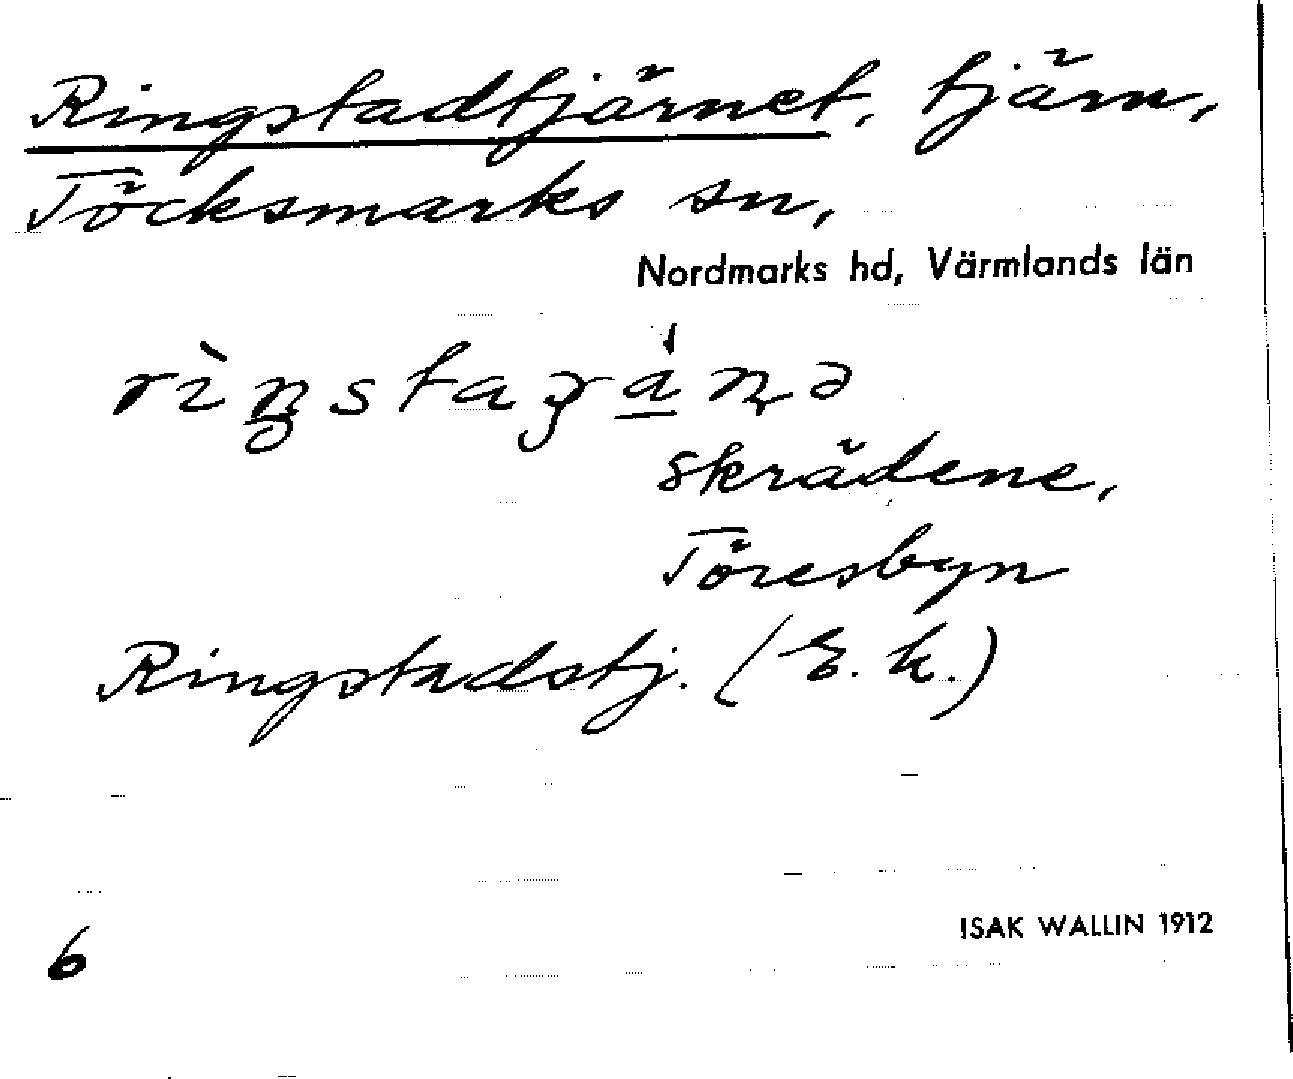 Ringstadtjärnet, tjärn,
Töcksmarks sn,
Nordmarks hd, Värmlands län
skrädene,
Töresbyn
Ringstadstj. (E. k.)
6
ISAK WALLIN 1912